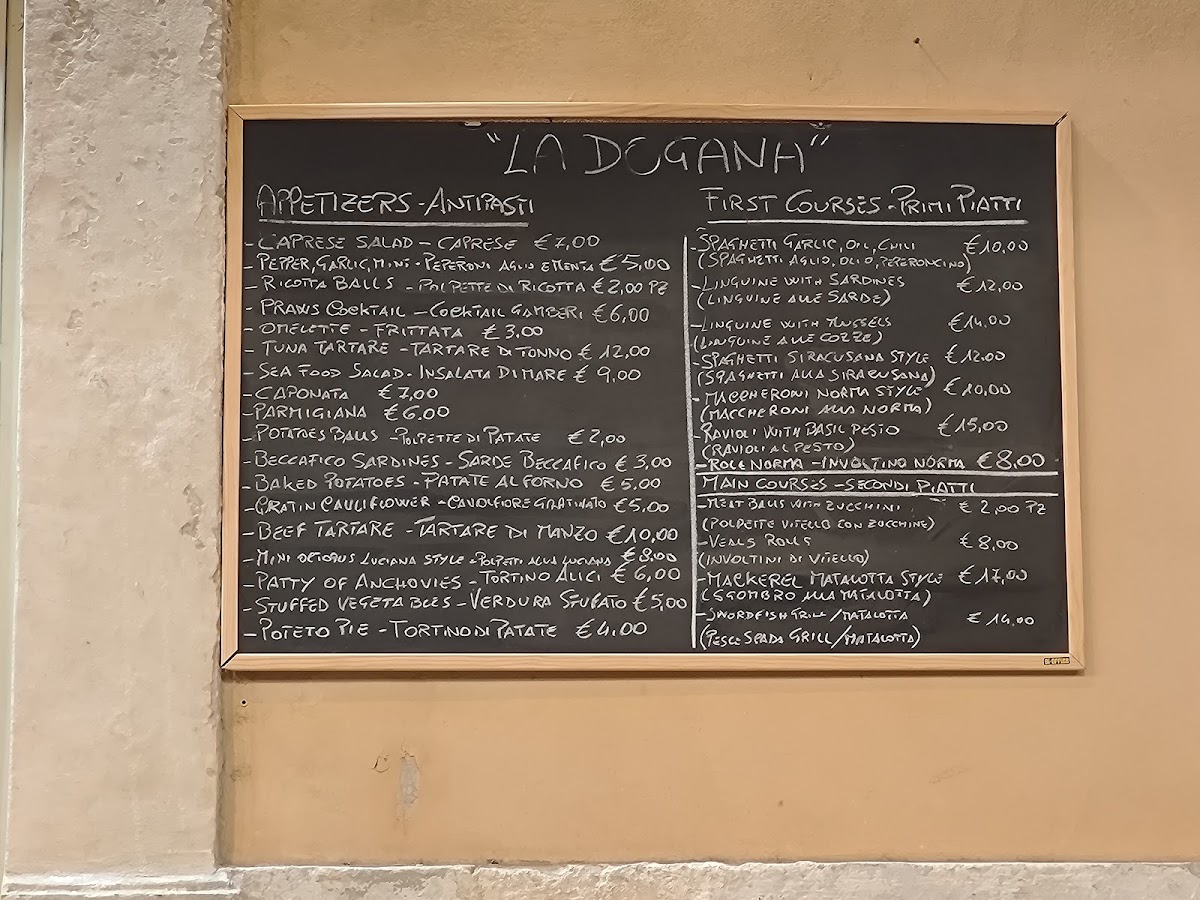 "LA DOGANA"
APPETIZERS - ANTIPASTI
- CAPRESE SALAD - CAPRESE €7,00
- PEPPER, GARLIC, MINT - PEPERONI AGLIO E MENTA €5,00
- RICOTTA BALLS - POLPETTE DI RICOTTA €2,00 PZ
- PRAWS COCKTAIL - COCKTAIL GAMBERI €6,00
- OMELETTE - FRITTATA €3,00
- TUNA TARTARE - TARTARE DI TONNO €12,00
- SEA FOOD SALAD - INSALATA DI MARE €9,00
- CAPONATA €7,00
- PARMIGIANA €6.00
- POTATOES BALLS - POLPETTE DI PATATE €2,00
- BECCAFICO SARDINES - SARDE BECCAFICO €3,00
- BAKED POTATOES - PATATE AL FORNO €5,00
- GRATIN CAULIFLOWER - CAVOLFIORE GRATINATO €5,00
- BEEF TARTARE - TARTARE DI MANZO €10,00
- MINI OCTOPUS LUCIANA STYLE - POLPETTI ALLA LUCIANA €8.00
- PATTY OF ANCHOVIES - TORTINO ALICI €6,00
- STUFFED VEGETABLES - VERDURA STUFATO €5,00
- POTETO PIE - TORTINO DI PATATE €4.00
FIRST COURSES - PRIMI PIATTI
- SPAGHETTI GARLIC, OIL, CHILI €10,00
(SPAGHETTI AGLIO, OLIO, PEPERONCINO)
- LINGUINE WITH SARDINES €12,00
(LINGUINE ALLE SARDE)
- LINGUINE WITH MUSSELS €14,00
(LINGUINE ALLE COZZE)
- SPAGHETTI SIRACUSANA STYLE €12.00
(SPAGHETTI ALLA SIRACUSANA)
- MACCHERONI NORMA STYLE €10,00
(MACCHERONI ALLA NORMA)
- RAVIOLI WITH BASIL PESTO €15,00
(RAVIOLI AL PESTO)
- ROLL NORMA - INVOLTINO NORMA €8.00
MAIN COURSES - SECONDI PIATTI
- MEAT BALLS WITH ZUCCHINI €2,00 PZ
(POLPETTE VITELLO CON ZUCCHINE)
- VEALS ROLLS €8,00
(INVOLTINI DI VITELLO)
- MACKEREL MATALOTTA STYLE €17,00
(SGOMBRO ALLA MATALOTTA)
- SWORDFISH GRILL/MATALOTTA €14,00
(PESCE SPADA GRILL/MATALOTTA)